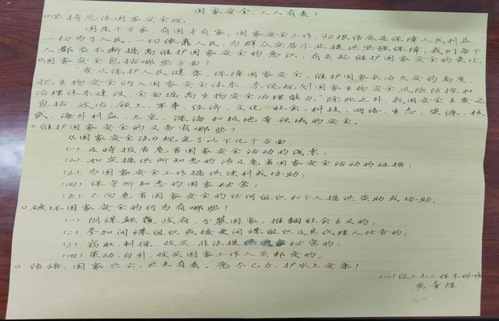 国家安全，人人有责！
○坚持总体国家安全观。
国泰十方宁，有国才有家，国家安全工作，归根结底是保障人民利益，
一切为了人民，一切依靠人民，为群众安居乐业提供坚强保障，我们每个
人都要不断提高维护国家安全的意识，有负起维护国家安全的责任。
○国家安全包括哪些方面？
要从保护人民健康，保障国家安全，维护国家长治久安的高度
把生物安全纳入国家安全体系，系统规划国家生物安全风险防控和
治理体系建设，全面提高生物安全治理能力，除此之外，我国安全主要还
包括，政治，领土，军事，经济，文化，社会，科技，网络，生态，资源，核
武，海外利益，太空，深海和极地等领域的安全。
○维护国家安全的义务有哪些？
《国家安全法》规定了以下几个方面
（一）及时报告危害国家安全活动的线索；
（二）如实提供所知悉的涉及危害国家安全活动的证据；
（三）为国家安全工作提供便利或协助；
（四）保守所知悉的国家秘密；
（五）不向危害国家安全的任何组织和个人提供资助或协助。
○破坏国家安全的行为有哪些？
（一）阴谋颠覆政府，分裂国家，推翻社会主义的；
（二）参加间谍组织或接受间谍组织及其代理人任务的；
（三）窃取刺探，收买非法提供国家秘密的；
（四）策动，勾引，收买国家工作人员叛变的。
○结语：国家兴亡，匹夫有责。
2021级土木工程本科